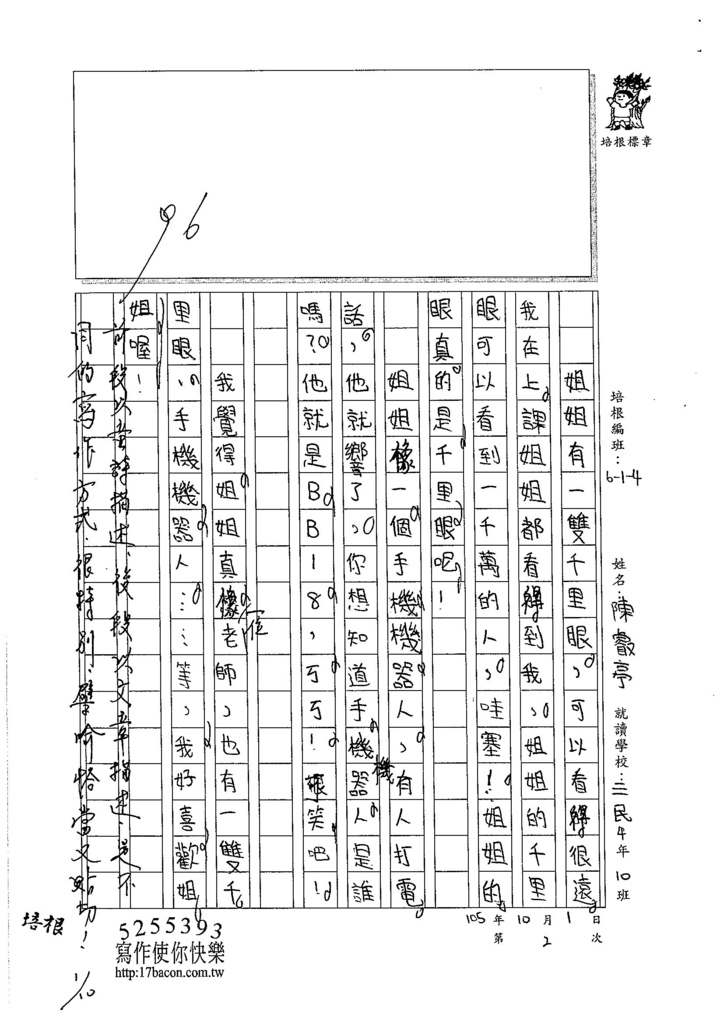 培根標章
96
培根編班：6-1-4
姓名：陳叡亭
就讀學校：三民4年10班
105年10月1日
第2次
姐姐有一雙千里眼，可以看得很遠
我在上課姐姐都看得到我，姐姐的千里
眼可以看到一千萬的人，哇塞！姐姐的
眼真的是千里眼呢！
姐姐像一個手機機器人，有人打電
話，他就響了，你想知道手機機器人是誰
嗎？他就是BB18，ㄎㄎ！很笑吧！
我覺得姐姐真像一位老師，也有一雙千
里眼，手機機器人……等，我好喜歡姐
姐喔！
前段以童詩描述，後段以文章描述，是不
同的寫作方式，很特別，譬喻恰當又貼切！
1/10
培根
5255393
寫作使你快樂
http:17bacon.com.tw